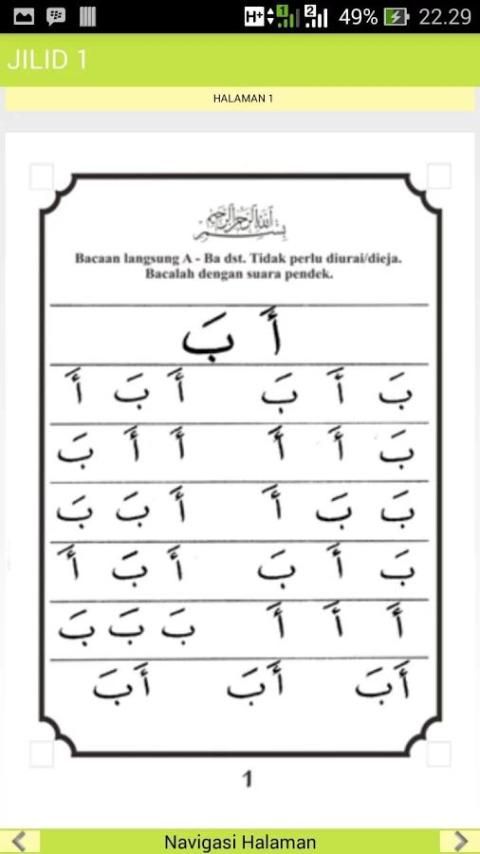 49% 22.29
JILID 1
HALAMAN 1
بسم الله الرحمن الرحيم
Bacaan langsung A - Ba dst. Tidak perlu diurai/dieja.
Bacalah dengan suara pendek.
أَ بَ
بَ أَ بَ أَ بَ أَ
بَ أَ أَ أَ أَ بَ
بَ بَ أَ أَ بَ بَ
بَ أَ بَ أَ بَ أَ
أَ أَ أَ بَ بَ بَ
أَبَ أَبَ أَبَ
1
Navigasi Halaman